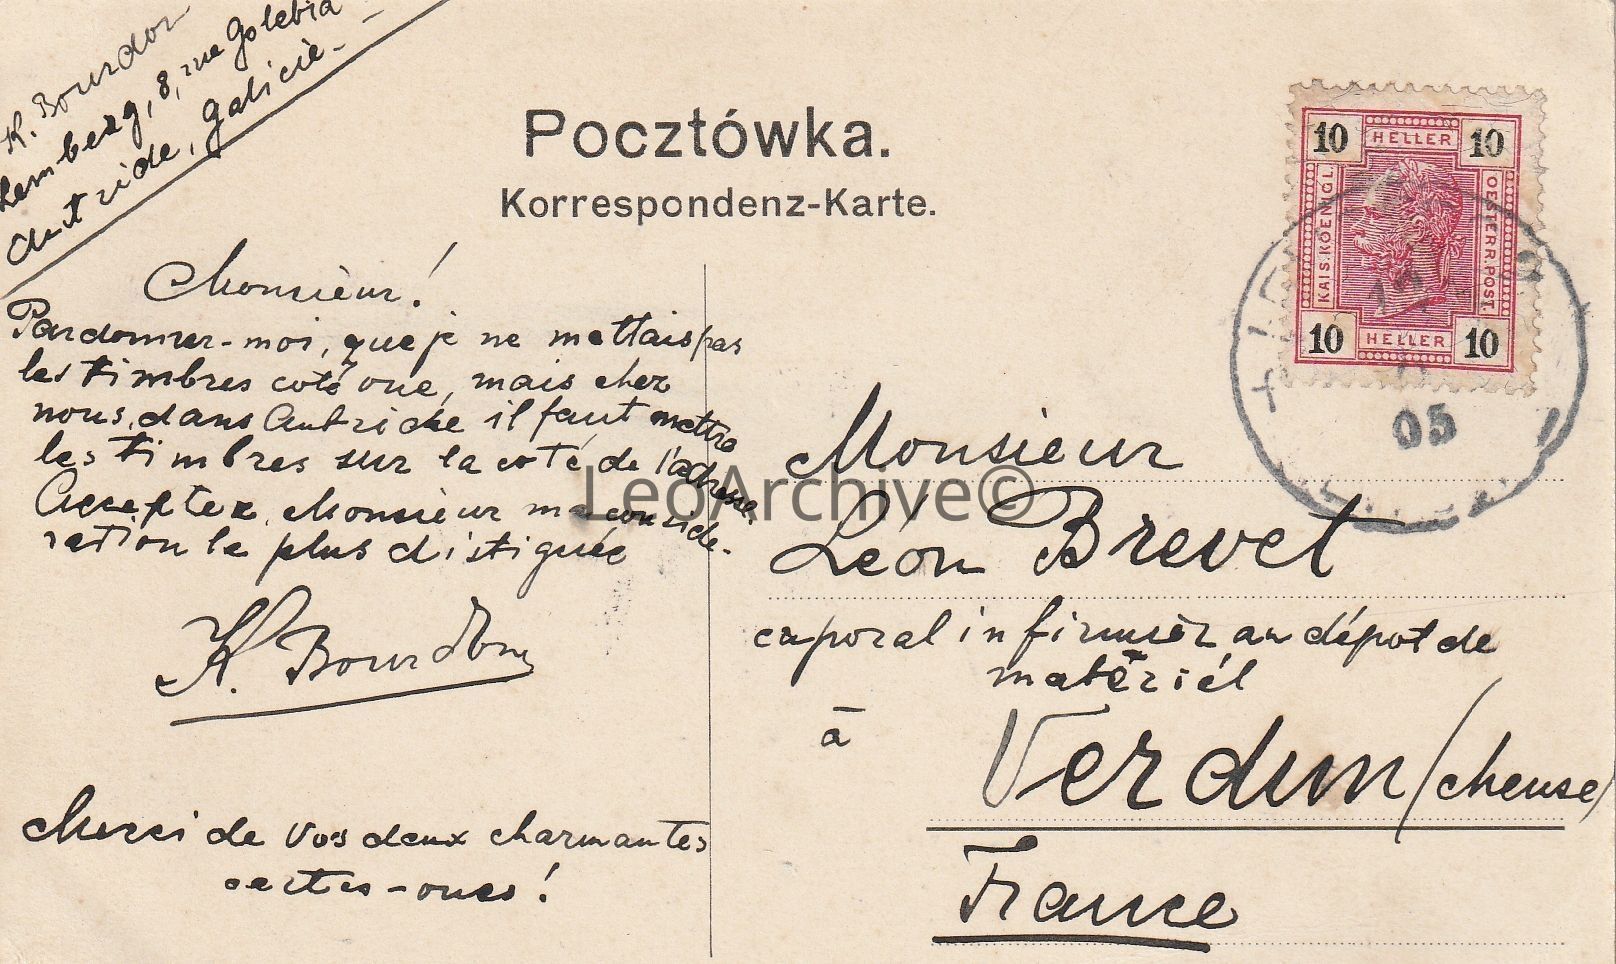 K. Bourdon
Lemberg, 8, rue Gołębia
Autriche, Galicie.
Pocztówka.
Korrespondenz-Karte.
10 HELLER 10
KAIS. KOENIGL.
OESTERR. POST.
10 HELLER 10
05
Monsieur!
Pardonner-moi, que je ne mettais pas
les timbres coté vue, mais chez
nous, dans Autriche il faut mettre
les timbres sur la coté de l'adresse.
Acceptez, Monsieur ma conside-
ration la plus distiguée
K. Bourdon
Merci de vos deux charmantes
cartes-vues!
Monsieur
Léon Brevet
caporal infirmièr au dépot de
matériél
à
Verdun (Meuse)
France
LeoArchive©